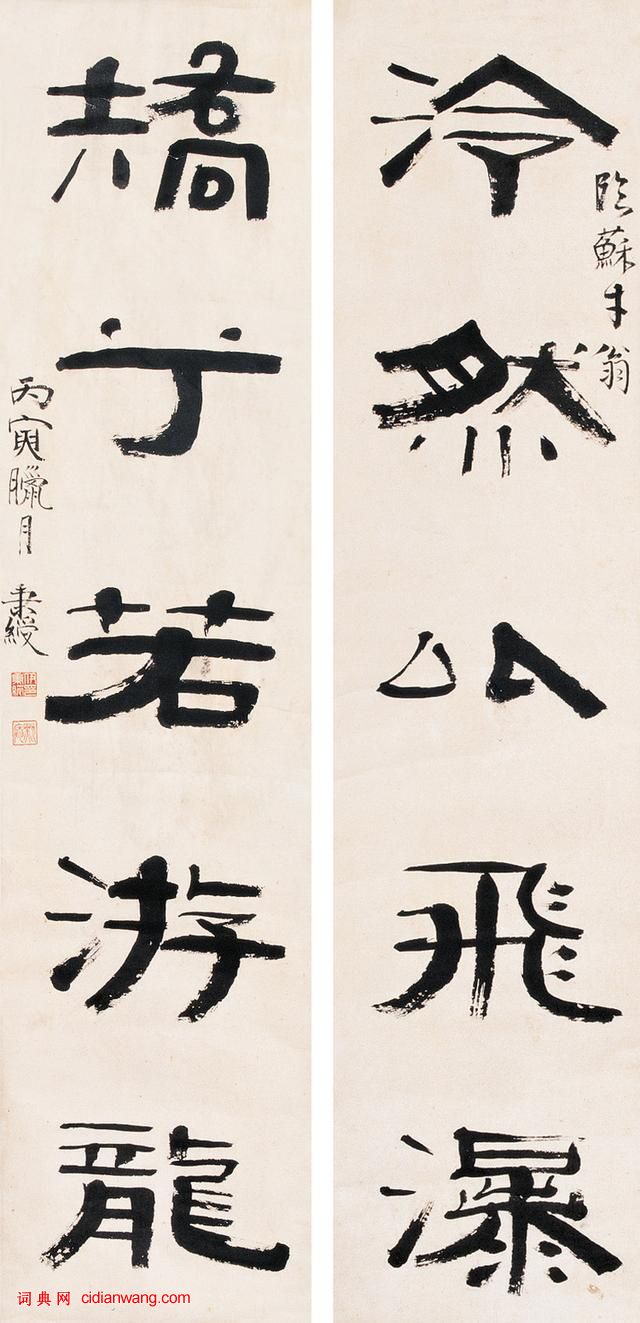 臨蘇才翁
泠然以飛瀑
矯乎若游龍
丙寅臘月 秉綬
词典网 cidianwang.com